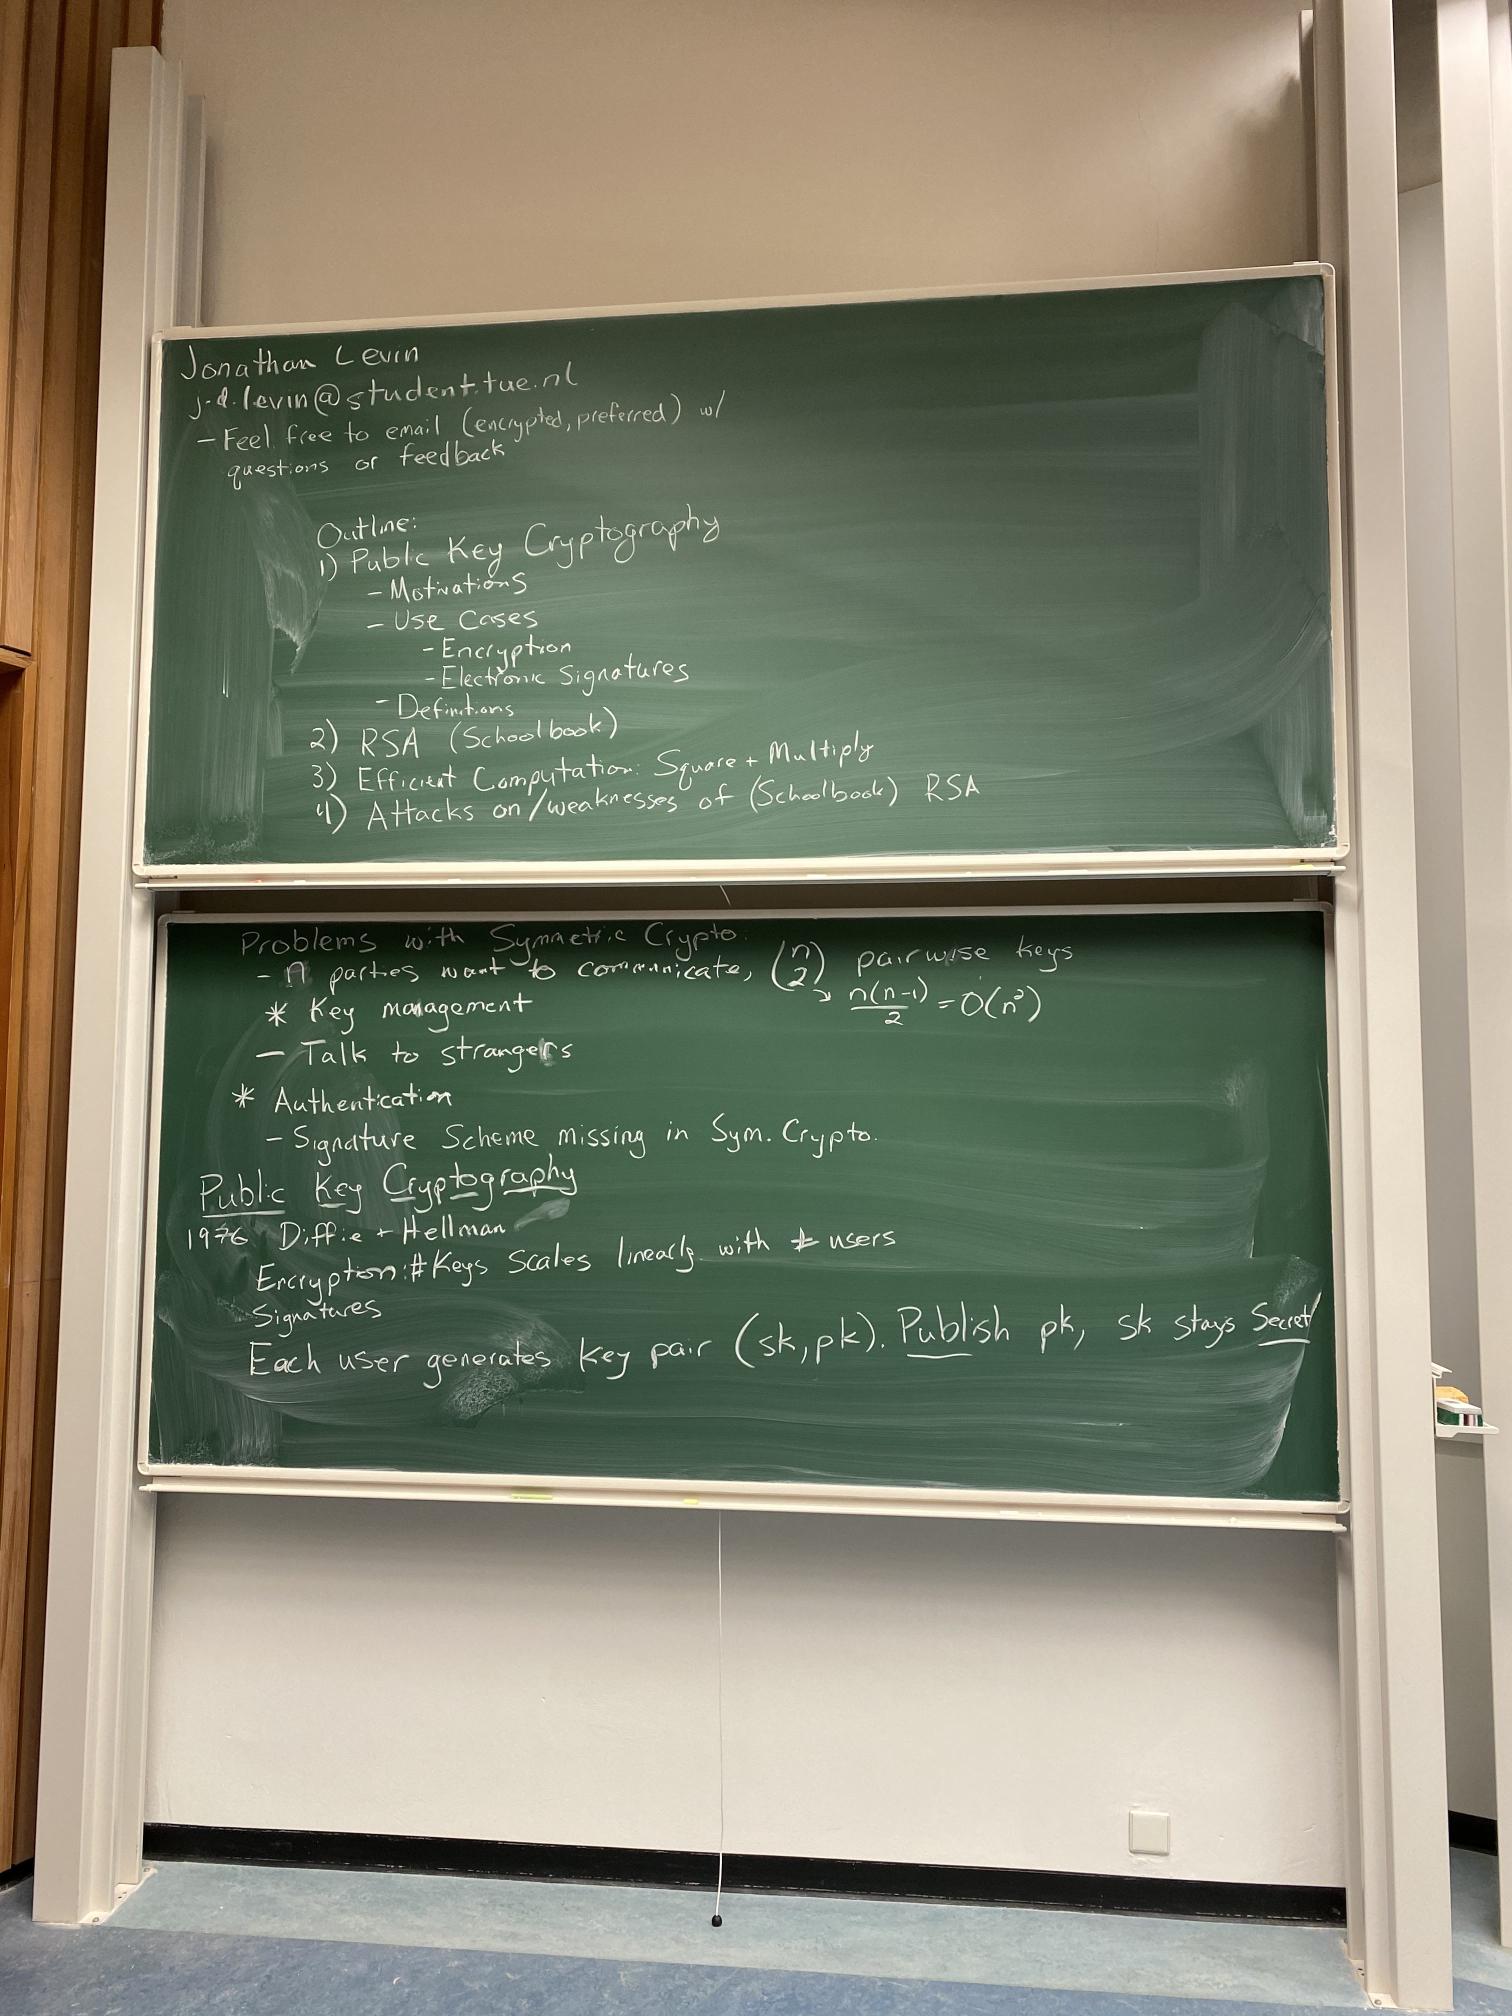 Jonathan Levin
j.d.levin@student.tue.nl
- Feel free to email (encrypted, preferred) w/
questions or feedback
Outline:
1) Public Key Cryptography
- Motivations
- Use Cases
- Encryption
- Electronic Signatures
- Definitions
2) RSA (Schoolbook)
3) Efficient Computation: Square + Multiply
4) Attacks on/weaknesses of (Schoolbook) RSA
Problems with Symmetric Crypto:
- n parties want to communicate, (n 2) pairwise keys
→ n(n-1)/2 = O(n²)
* Key management
- Talk to strangers
* Authentication
- Signature Scheme missing in Sym. Crypto.
Public Key Cryptography
1976 Diffie + Hellman
Encryption: # Keys Scales linearly with # users
Signatures
Each user generates key pair (sk, pk). Publish pk, sk stays Secret